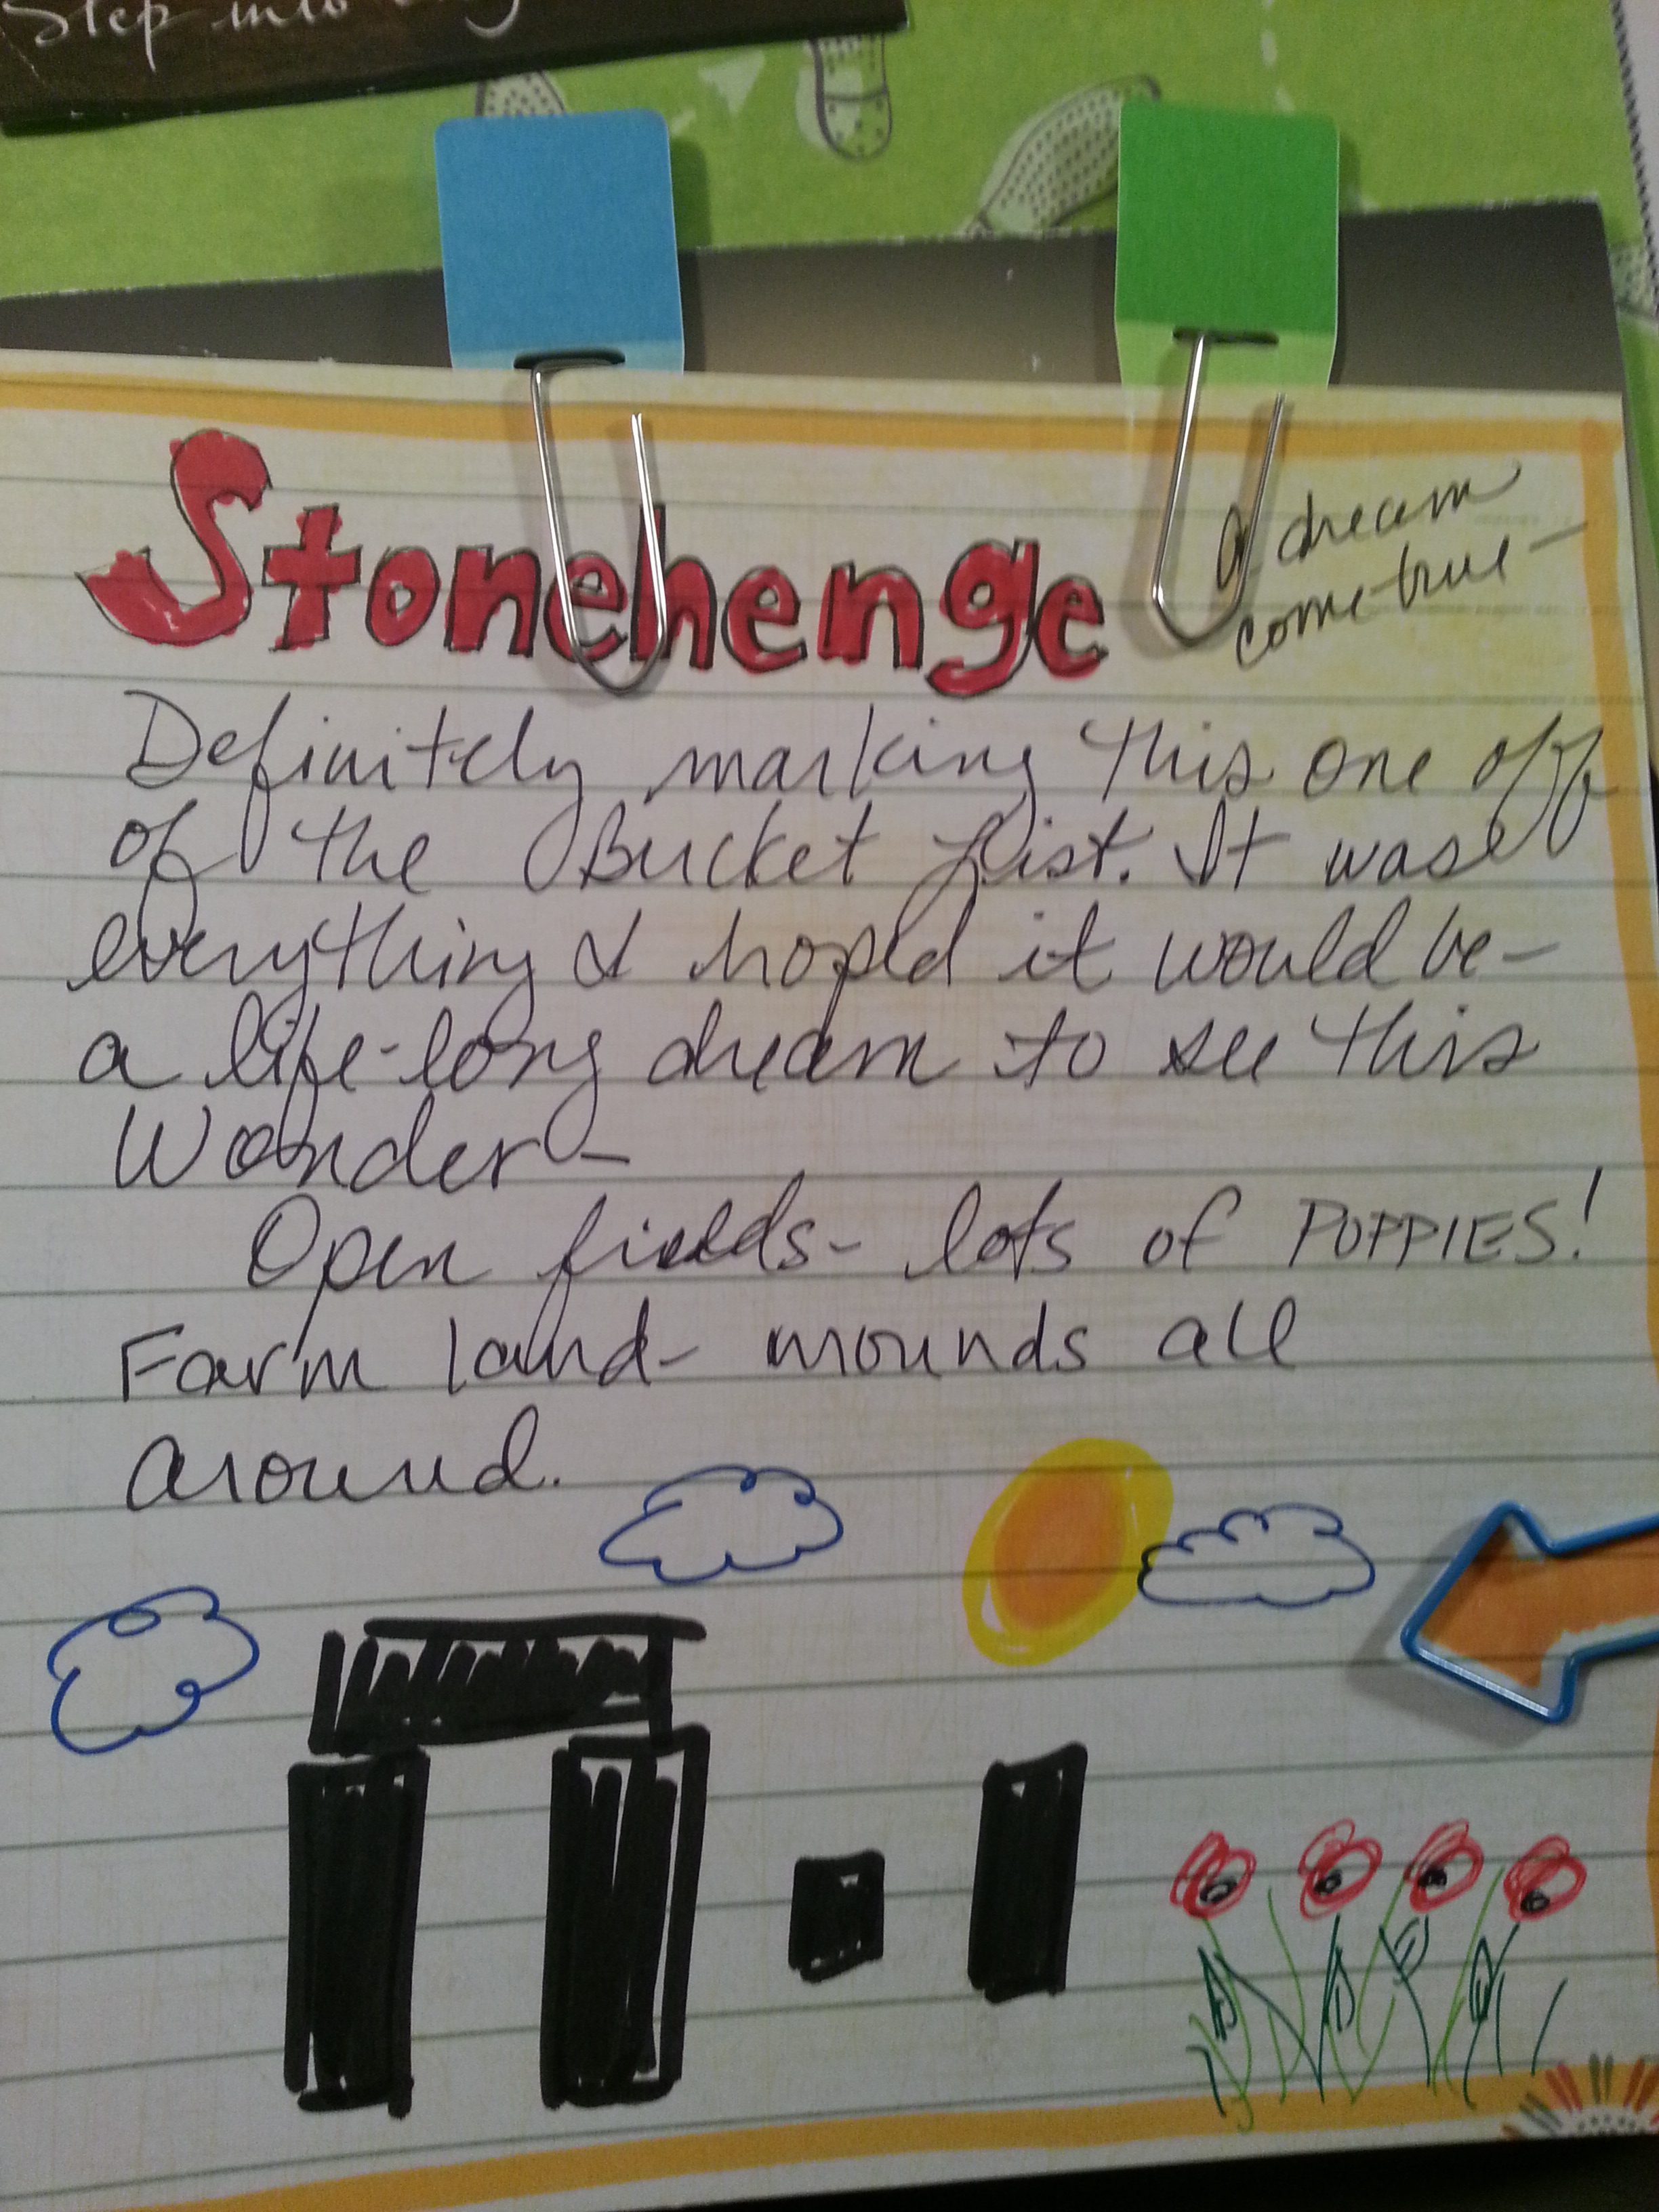 Step into
Stonehenge
a dream
come true —
Definitely marking this one off
of the Bucket List. It was
everything I hoped it would be -
a life-long dream to see this
Wonder -
Open fields - lots of POPPIES!
Farm land - mounds all
around.